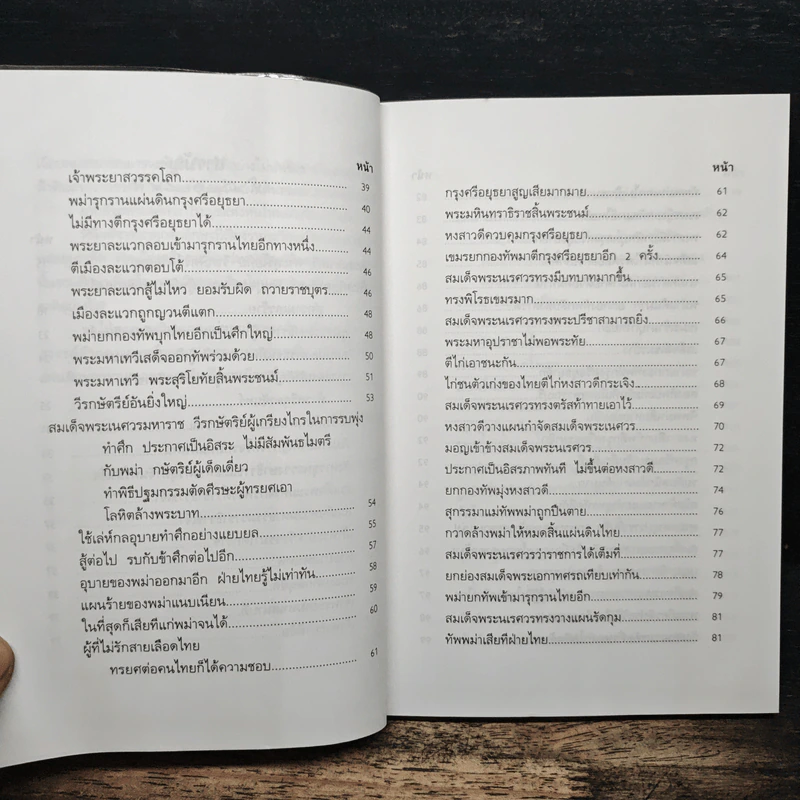 หน้า
เจ้าพระยาสวรรคโลก 39
พม่ารุกรานแผ่นดินกรุงศรีอยุธยา 40
ไม่มีทางตีกรุงศรีอยุธยาได้ 44
พระยาละแวกลอบเข้ามารุกรานไทยอีกทางหนึ่ง 44
ตีเมืองละแวกตอบโต้ 46
พระยาละแวกสู้ไม่ไหว ยอมรับผิด ถวายราชบุตร 46
เมืองละแวกถูกญวนตีแตก 48
พม่ายกกองทัพบุกไทยอีกเป็นศึกใหญ่ 48
พระมหาเทวีเสด็จออกทัพร่วมด้วย 50
พระมหาเทวี พระสุริโยทัยสิ้นพระชนม์ 51
วีรกษัตรีย์อันยิ่งใหญ่ 53
สมเด็จพระนเรศวรมหาราช วีรกษัตริย์ผู้เกรียงไกรในการรบพุ่ง
ทำศึก ประกาศเป็นอิสระ ไม่มีสัมพันธไมตรี
กับพม่า กษัตริย์ผู้เด็ดเดี่ยว
ทำพิธีปฐมกรรมตัดศีรษะผู้ทรยศเอา
โลหิตล้างพระบาท 54
ใช้เล่ห์กลอุบายทำศึกอย่างแยบยล 55
สู้ต่อไป รบกับข้าศึกต่อไปอีก 57
อุบายของพม่าออกมาอีก ฝ่ายไทยรู้ไม่เท่าทัน 58
แผนร้ายของพม่าแนบเนียน 59
ในที่สุดก็เสียทีแก่พม่าจนได้ 60
ผู้ที่ไม่รักสายเลือดไทย
ทรยศต่อคนไทยก็ได้ความชอบ 61
หน้า
กรุงศรีอยุธยาสูญเสียมากมาย 61
พระมหินทราธิราชสิ้นพระชนม์ 62
หงสาวดีควบคุมกรุงศรีอยุธยา 62
เขมรยกกองทัพมาตีกรุงศรีอยุธยาอีก 2 ครั้ง 64
สมเด็จพระนเรศวรทรงมีบทบาทมากขึ้น 65
ทรงพิโรธเขมรมาก 65
สมเด็จพระนเรศวรทรงพระปรีชาสามารถยิ่ง 66
พระมหาอุปราชาไม่พอพระทัย 67
ตีไก่เอาชนะกัน 67
ไก่ชนตัวเก่งของไทยตีไก่หงสาวดีกระเจิง 68
สมเด็จพระนเรศวรทรงตรัสท้าทายเอาไว้ 69
หงสาวดีวางแผนกำจัดสมเด็จพระนเรศวร 70
มอญเข้าข้างสมเด็จพระนเรศวร 72
ประกาศเป็นอิสรภาพทันที ไม่ขึ้นต่อหงสาวดี 72
ยกกองทัพมุ่งหงสาวดี 74
สุกรรมาแม่ทัพพม่าถูกปืนตาย 76
กวาดล้างพม่าให้หมดสิ้นแผ่นดินไทย 77
สมเด็จพระนเรศวรว่าราชการได้เต็มที่ 77
ยกย่องสมเด็จพระเอกาทศรถเทียบเท่ากัน 78
พม่ายกทัพเข้ามารุกรานไทยอีก 79
สมเด็จพระนเรศวรทรงวางแผนรัดกุม 81
ทัพพม่าเสียทีฝ่ายไทย 81